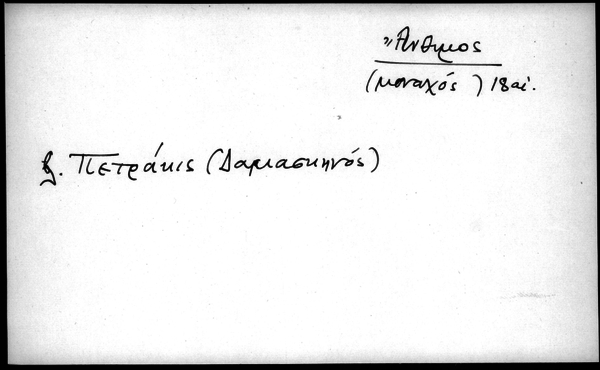 Ἄνθιμος
(μοναχός) 18 αἰ.
βλ. Πετράκις (Δαμασκηνός)